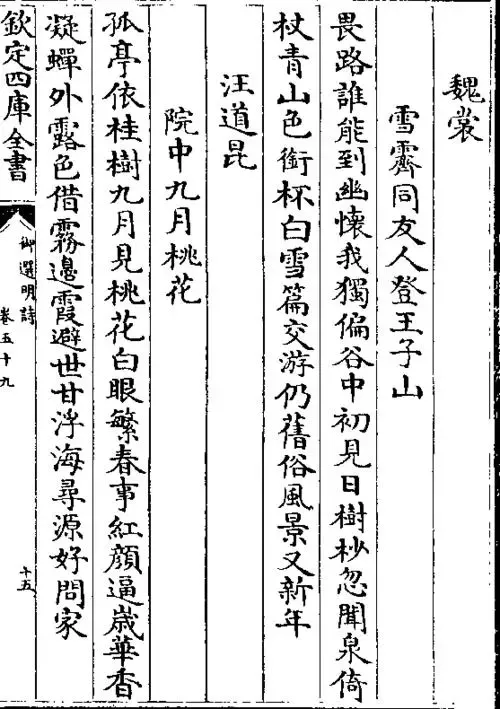 魏裳
雪霽同友人登王子山
畏路誰能到幽懷我獨偏谷中初見日樹杪忽聞泉倚
杖青山色銜杯白雪篇交游仍舊俗風景又新年
汪道昆
院中九月桃花
孤亭依桂樹九月見桃花白眼繁春事紅顔逼歲華香
凝蟬外露色借霧邊霞避世甘浮海尋源好問家
欽定四庫全書
御選明詩
卷五十九
十五